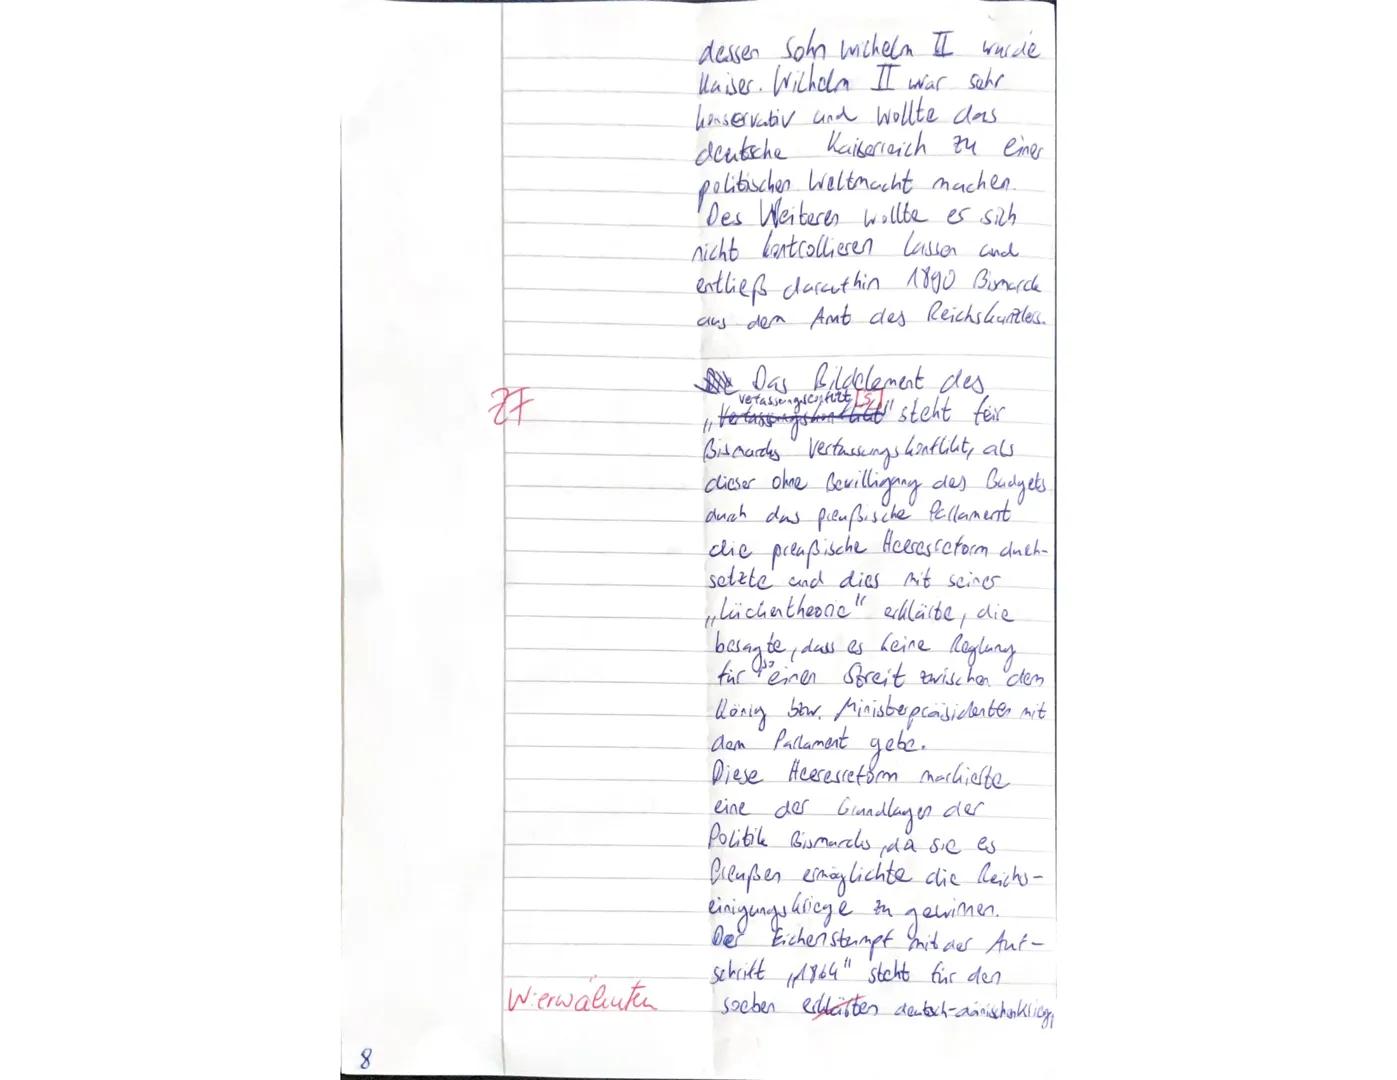 dessen Sohn Wilhelm II wurde
Kaiser. Wilhelm II war sehr
konservativ und wollte das
deutsche Kaiserreich zu einer
politischen Weltmacht machen.
Des Weiteren wollte er sich
nicht kontrollieren lassen und
entließ daraufhin 1890 Bismarck
aus dem Amt des Reichskanzlers.
Das Bildelement des
ZF
"steht für
Bismarcks Verfassungskonflikt, als
dieser ohne Bewilligung des Budgets
durch das preußische Parlament
die preußische Heeresreform durch-
setzte und dies mit seiner
„Lückentheorie" erklärte, die
besagte, dass es keine Reglung
für einen Streit zwischen dem
König bzw. Ministerpräsidenten mit
dem Parlament gebe.
Diese Heeresreform markierte
eine der Grundlagen der
Politik Bismarcks, da sie es
Preußen ermöglichte die Reichs-
einigungskriege zu gewinnen.
Der Eichenstumpf mit der Auf-
schrift „1864" steht für den
W: erwähnten
soeben erklärten deutsch-dänischenKrieg,
8